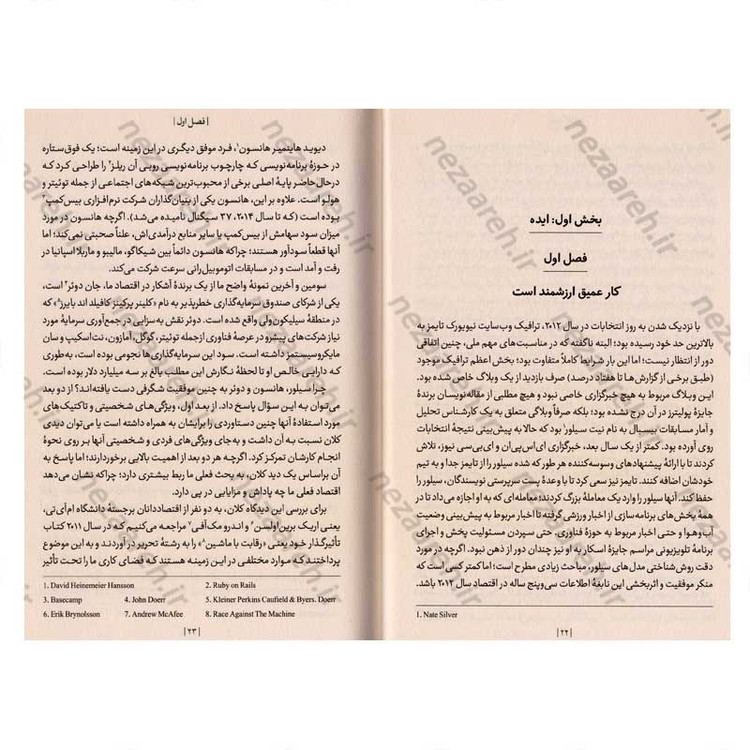 بخش اول: ایده
فصل اول
کار عمیق ارزشمند است
با نزدیک شدن به روز انتخابات در سال ۲۰۱۲، ترافیک وب‌سایت نیویورک تایمز به
بالاترین حد خود رسیده بود؛ البته ناگفته که در مناسبت‌های مهم ملی، چنین اتفاقی
دور از انتظار نیست؛ اما این بار شرایط کاملاً متفاوت بود؛ بخش اعظم ترافیک موجود
(طبق برخی از گزارش‌ها تا هفتاد درصد) صرف بازدید از یک وبلاگ خاص شده بود.
این وبلاگ مربوط به هیچ خبرگزاری خاصی نبود و هیچ مطلبی از مقاله‌نویسان برندهٔ
جایزهٔ پولیتزر در آن درج نشده بود؛ بلکه صرفاً وبلاگی متعلق به یک کارشناس تحلیل
و آمار مسابقات بیسبال به نام نیت سیلور۱ بود که حالا به پیش‌بینی نتیجهٔ انتخابات
روی آورده بود. کمتر از یک سال بعد، خبرگزاری ای‌اس‌پی‌ان و ای‌بی‌سی نیوز، تلاش
کردند تا با ارائهٔ پیشنهادهای وسوسه‌کننده هر طور که شده سیلور را از تایمز جدا و به تیم
خودشان اضافه کنند. تایمز نیز سعی کرد تا با وعدهٔ پست سرپرستی نویسندگان، سیلور را
حفظ کند. آنها سیلور را وارد یک معاملهٔ بزرگ کردند؛ معامله‌ای که به او اجازه می‌داد تا در
همهٔ بخش‌های برنامه‌سازی از اخبار ورزشی گرفته تا اخبار مربوط به پیش‌بینی وضعیت
آب‌وهوا و حتی اخبار مربوط به حوزهٔ فناوری. حتی سپردن مسئولیت پخش و اجرای
برنامهٔ تلویزیونی مراسم جایزهٔ اسکار به او نیز چندان دور از ذهن نبود. اگرچه در مورد
دقت روش‌شناختی مدل‌های سیلور، مباحث زیادی مطرح است؛ اما کمتر کسی است که
منکر موفقیت و اثربخشی این نابغهٔ اطلاعات سی‌وپنج ساله در اقتصاد سال ۲۰۱۲ باشد.
1. Nate Silver
| ۲۲ |
| فصل اول |
دیوید هاینمیر هانسون۱، فرد موفق دیگری در این زمینه است؛ یک فوق‌ستاره
در حوزهٔ برنامه‌نویسی که چارچوب برنامه‌نویسی روبی آن ریلز۲ را طراحی کرد که
درحال‌حاضر پایهٔ اصلی برخی از محبوب‌ترین شبکه‌های اجتماعی از جمله توئیتر و
هولو است. علاوه بر این، هانسون یکی از بنیان‌گذاران شرکت نرم‌افزاری بیس‌کمپ۳
بوده است (که تا سال ۲۰۱۴، ۳۷ سیگنال نامیده می‌شد). اگرچه هانسون در مورد
میزان سود سهامش از بیس‌کمپ یا سایر منابع درآمدی‌اش، علناً صحبتی نمی‌کند؛ اما
آنها قطعاً سودآور هستند؛ چراکه هانسون دائماً بین شیکاگو، مالیبو و ماربلا اسپانیا در
رفت و آمد است و در مسابقات اتومبیل‌رانی سرعت شرکت می‌کند.
سومین و آخرین نمونهٔ واضح ما از یک برندهٔ آشکار در اقتصاد ما، جان دوئر۴ است،
یکی از شرکای صندوق سرمایه‌گذاری خطرپذیر به نام «کلینر پرکینز کافیلد اند بایرز۵» که
در منطقهٔ سیلیکون‌ولی واقع شده است. دوئر نقش به‌سزایی در جمع‌آوری سرمایهٔ مورد
نیاز شرکت‌های پیشرو در عرصهٔ فناوری ازجمله توئیتر، گوگل، آمازون، نت‌اسکیپ و سان
مایکروسیستمز داشته است. سود این سرمایه‌گذاری‌ها نجومی بوده است، به‌طوری
که دارایی خالص او تا لحظهٔ نگارش این مطلب بالغ بر سه میلیارد دلار بوده است.
چرا سیلور، هانسون و دوئر به چنین موفقیت شگرفی دست یافته‌اند؟ از دو بعد
می‌توان به این سؤال پاسخ داد. از بعد اول، ویژگی‌های شخصیتی و تاکتیک‌های
مورد استفادهٔ آنها چنین دستاوردی را برایشان به همراه داشته است یا می‌توان دیدی
کلان نسبت به آن داشت و به‌جای ویژگی‌های فردی و شخصیتی آنها بر روی نحوهٔ
انجام کارشان تمرکز کرد. اگرچه هر دو بعد از اهمیت بالایی برخوردارند؛ اما پاسخ به
آن براساس یک دید کلان، به بحث فعلی ما ربط بیشتری دارد؛ چراکه نشان می‌دهد
اقتصاد فعلی ما چه پاداش و مزایایی در پی دارد.
برای بررسی این دیدگاه کلان، به دو نفر از اقتصاددانان برجستهٔ دانشگاه ام‌آی‌تی،
یعنی اریک برین‌اولسن۶ و اندرو مک‌آفی۷ مراجعه می‌کنیم که در سال ۲۰۱۱ کتاب
تأثیرگذار خود یعنی «رقابت با ماشین۸» را به رشتهٔ تحریر درآوردند و به این موضوع
پرداختند که موارد مختلفی در این زمینه هستند که فضای کاری ما را تحت تأثیر
1. David Heinemeier Hansson 2. Ruby on Rails
3. Basecamp 4. John Doerr 5. Kleiner Perkins Caufield & Byers. Doerr
6. Erik Brynolsson 7. Andrew McAfee 8. Race Against The Machine
| ۲۳ |
nezaareh.ir